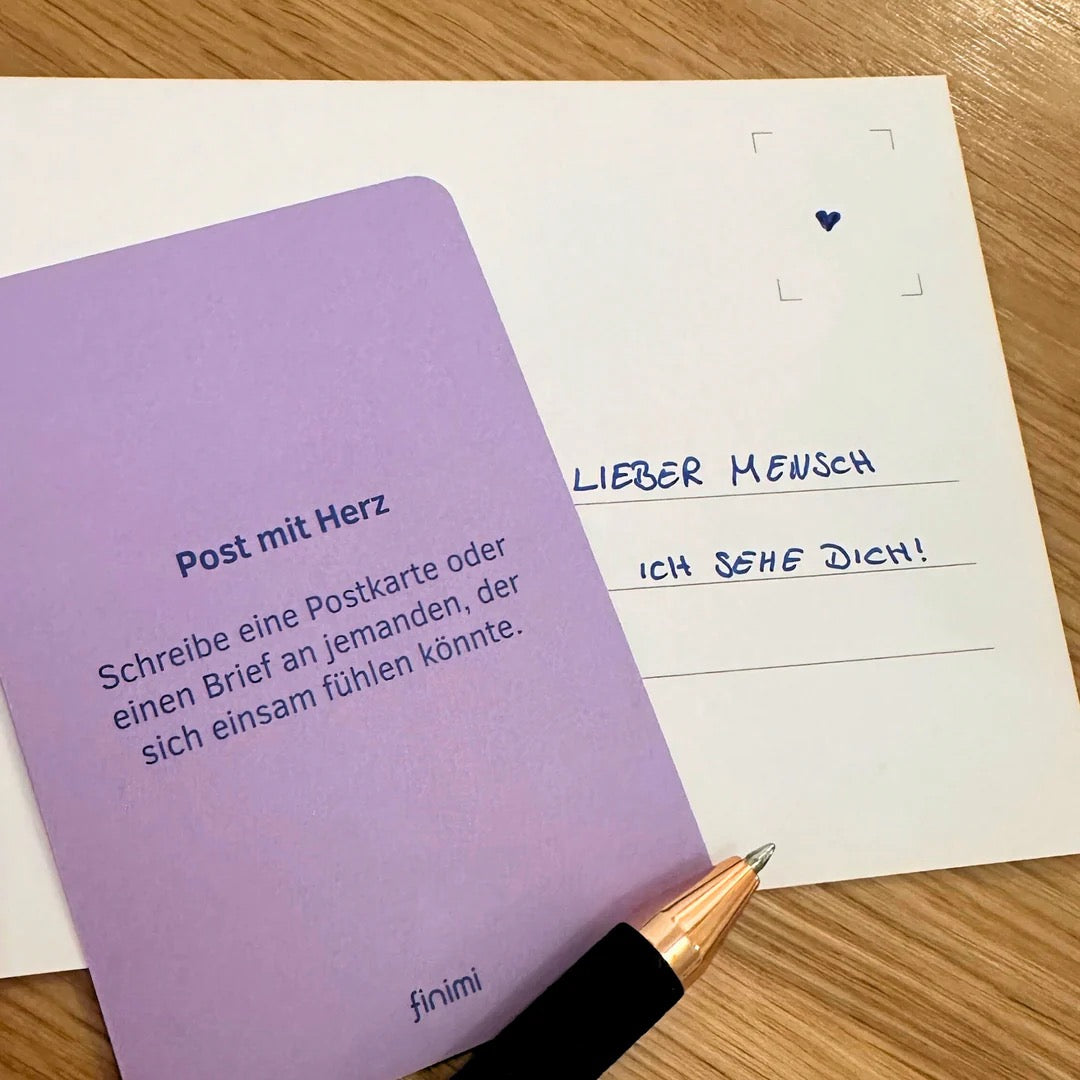 Post mit Herz
Schreibe eine Postkarte oder
einen Brief an jemanden, der
sich einsam fühlen könnte.
finimi
LIEBER MENSCH
ICH SEHE DICH!